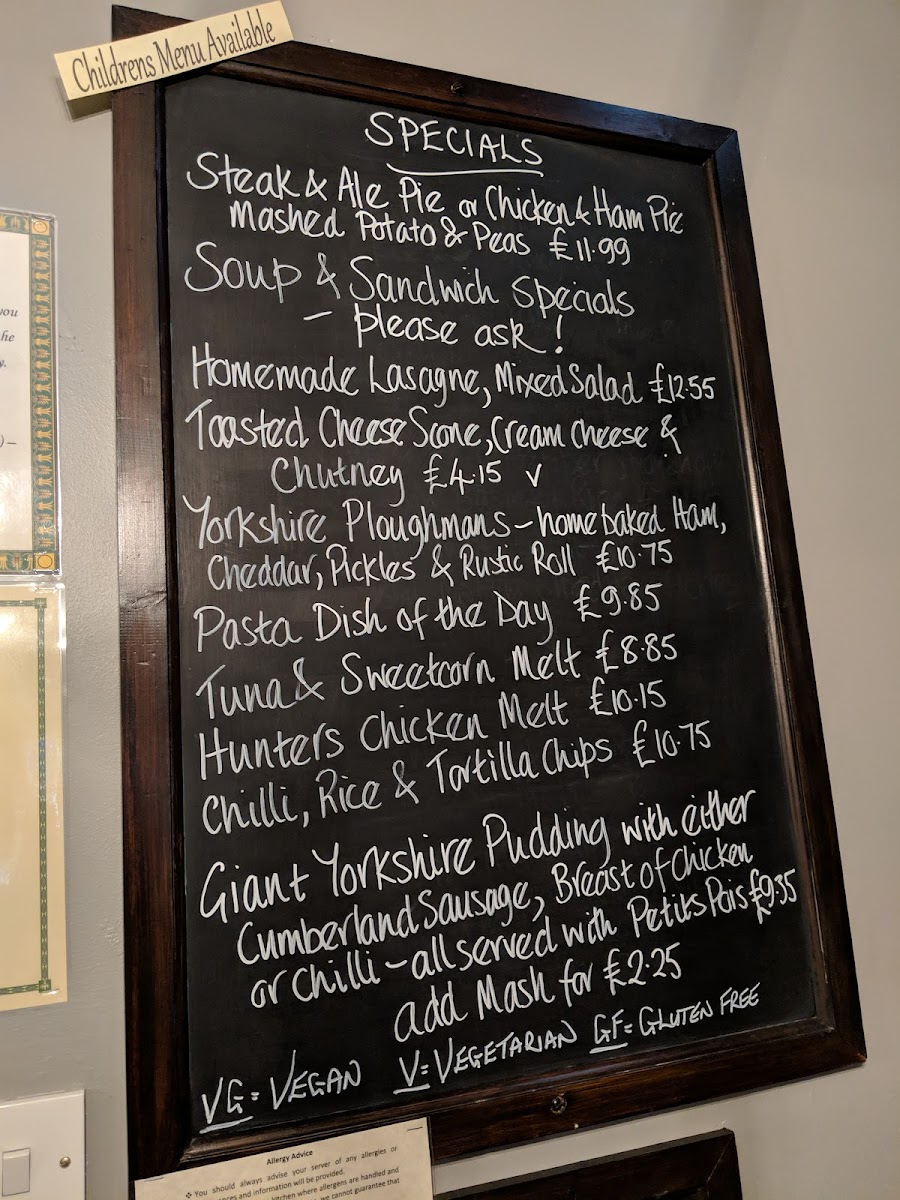 Childrens Menu Available
SPECIALS
Steak & Ale Pie or Chicken & Ham Pie
Mashed Potato & Peas £11.99
Soup & Sandwich Specials
- please ask!
Homemade Lasagne, Mixed Salad £12.55
Toasted Cheese Scone, Cream Cheese &
Chutney £4.15 V
Yorkshire Ploughmans - home baked Ham,
Cheddar, Pickles & Rustic Roll £10.75
Pasta Dish of the Day £9.85
Tuna & Sweetcorn Melt £8.85
Hunters Chicken Melt £10.15
Chilli, Rice & Tortilla Chips £10.75
Giant Yorkshire Pudding with either
Cumberland Sausage, Breast of Chicken
or Chilli - all served with Petits Pois £9.35
add Mash for £2.25
VG = VEGAN V = VEGETARIAN GF = GLUTEN FREE
you
the
Allergy Advice
You should always advise your server of any allergies or
and information will be provided.
kitchen where allergens are handled and
we cannot guarantee that